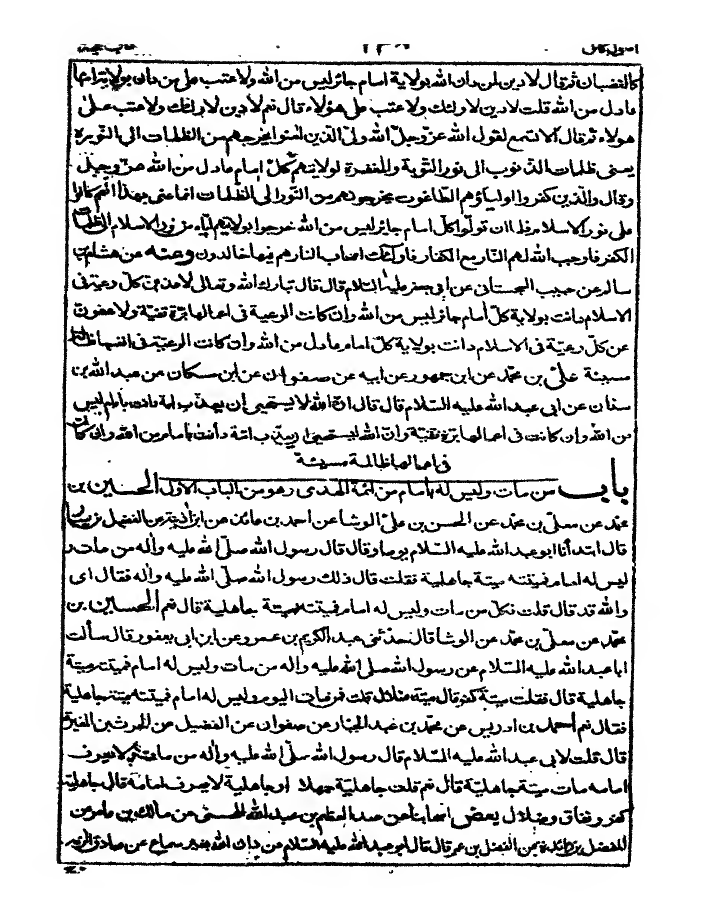 اصول كافي
كتاب الحجة
كالغضبان ثم قال لا دين لمن دان الله بولاية امام جائر ليس من الله ولا عتب على من دان بولاية امام
عادل من الله قلت لا دين لاولئك ولا عتب على هؤلاء قال نعم لا دين لاولئك ولا عتب على
هولاء ثم قال الا تسمع لقول الله عز وجل الله ولي الذين امنوا يخرجهم من الظلمات الى النور
يعني ظلمات الذنوب الى نور التوبة والمغفرة لولايتهم كل امام عادل من الله عز وجل
وقال والذين كفروا اولياؤهم الطاغوت يخرجونهم من النور الى الظلمات انما عنى بهذا انهم كانوا
على نور الاسلام فلما ان تولوا كل امام جائر ليس من الله خرجوا بولايتهم اياه من نور الاسلام الى ظلمات
الكفر فاوجب الله لهم النار مع الكفار فاولئك اصحاب النار هم فيها خالدون وعنه عن هشام بن
سالم عن حبيب السجستاني عن ابي جعفر عليه السلام قال قال تبارك الله وتعالى لاعذبن كل رعية في
الاسلام دانت بولاية كل امام جائر ليس من الله وان كانت الرعية في اعمالها برة تقية ولاعفون
عن كل رعية في الاسلام دانت بولاية كل امام عادل من الله وان كانت الرعية في انفسها ظالمة
مسيئة علي بن محمد عن ابن جمهور عن ابيه عن صفوان عن ابن مسكان عن عبد الله بن
سنان عن ابي عبد الله عليه السلام قال قال ان الله لا يستحيي ان يعذب امة دانت بامام ليس
من الله وان كانت في اعمالها برة تقية وان الله ليستحيي ان يعذب امة دانت بامام من الله وان كانت
في اعمالها ظالمة مسيئة
باب من مات وليس له امام من ائمة الهدى وهو من الباب الاول الحسين بن
محمد عن معلى بن محمد عن الحسن بن علي الوشا عن احمد بن عائذ عن ابن اذينة عن الفضيل بن يسار
قال ابتدأنا ابو عبد الله عليه السلام يوما وقال قال رسول الله صلى الله عليه واله من مات و
ليس له امام فميتته ميتة جاهلية فقلت قال ذلك رسول الله صلى الله عليه واله فقال اي
والله قد قال قلت فكل من مات وليس له امام فميتته ميتة جاهلية قال نعم الحسين بن
محمد عن معلى بن محمد عن الوشا قال حدثني عبد الكريم بن عمرو عن ابن ابي يعفور قال سألت
ابا عبد الله عليه السلام عن رسول الله صلى الله عليه واله من مات وليس له امام فميتته ميتة
جاهلية قال فقلت ميتة كفر قال ميتة ضلال قلت فمن مات اليوم وليس له امام فميتته ميتة جاهلية
فقال نعم احمد بن ادريس عن محمد بن عبد الجبار عن صفوان عن الفضيل عن الحرث بن المغيرة
قال قلت لابي عبد الله عليه السلام قال رسول الله صلى الله عليه واله من مات لا يعرف
امامه مات ميتة جاهلية قال نعم قلت جاهلية جهلا او جاهلية لا يعرف امامه قال جاهلية
كفر ونفاق وضلال بعض اصحابنا عن عبد العظيم بن عبد الله الحسني عن مالك بن عامر عن
المفضل بن زائدة عن المفضل بن عمر قال قال ابو عبد الله عليه السلام من دان الله بغير سماع عن صادق